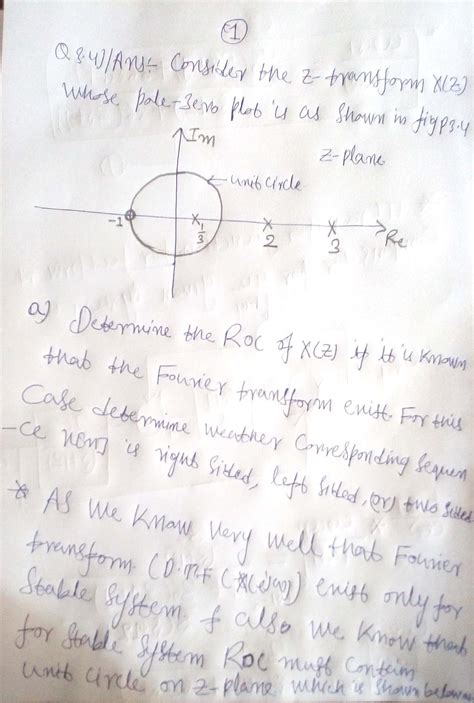 1
Q3.4)/Ans:- Consider the z-transform X(Z)
whose pole-zero plot is as shown in fig p3.4
Im
z-plane
unit circle
-1
1/3
2
3
Re
a) Determine the ROC of X(Z) if it is known
that the Fourier transform exist. For this
Case determine weather Corresponding Sequen
-ce x[n] is right Sided, left Sided, (or) two sided
* As we know very well that Fourier
transform (D.T.F (X(ejω)) exist only for
Stable System & also we know that
for Stable System ROC must contain
unit circle on z-plane which is shown below